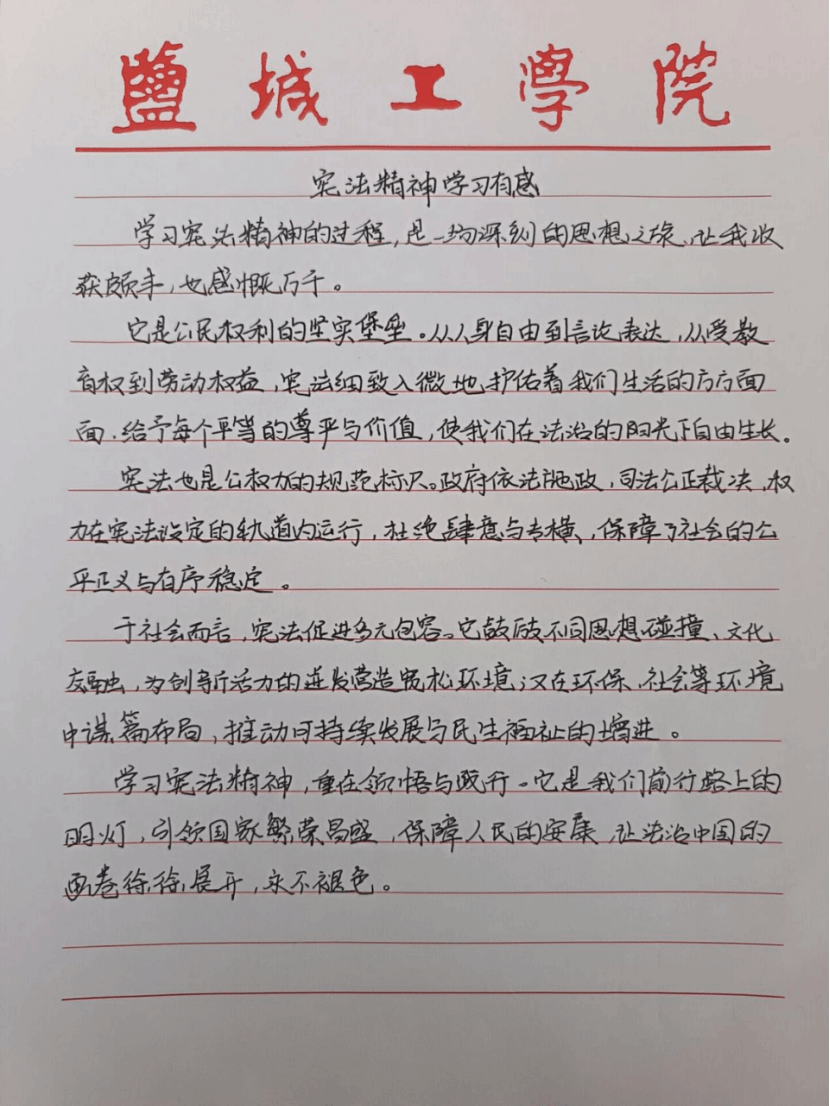 鹽城工學院
宪法精神学习有感
学习宪法精神的过程，是一场深刻的思想之旅，让我收
获颇丰，也感慨万千。
它是公民权利的坚实堡垒。从人身自由到言论表达，从受教
育权到劳动权益，宪法细致入微地护佑着我们生活的方方面
面，给予每个平等的尊严与价值，使我们在法治的阳光下自由生长。
宪法也是公权力的规范标尺。政府依法施政，司法公正裁决，权
力在宪法设定的轨道内运行，杜绝肆意与专横，保障了社会的公
平正义与有序稳定。
于社会而言，宪法促进多元包容。它鼓励不同思想碰撞、文化
交融，为创新活力的迸发营造宽松环境；又在环保、社会等环境
中谋篇布局，推动可持续发展与民生福祉的增进。
学习宪法精神，重在领悟与践行。它是我们前行路上的
明灯，引领国家繁荣昌盛，保障人民的安康，让法治中国的
画卷徐徐展开，永不褪色。